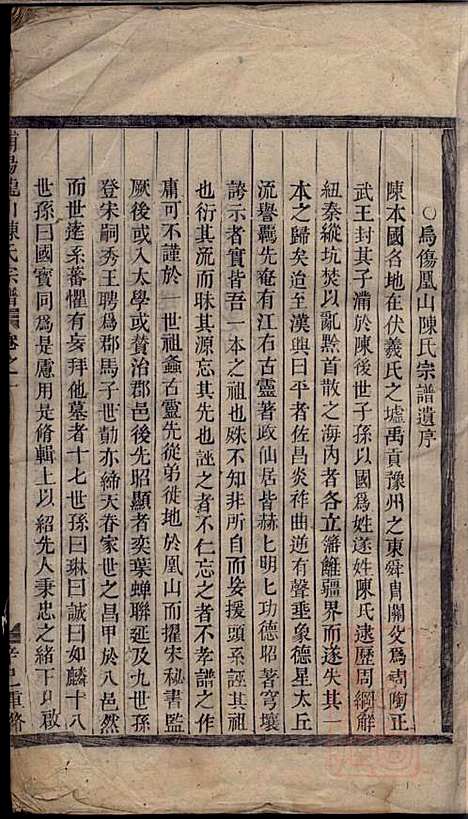 ○烏傷鳳山陳氏宗譜遺序
陳本國名地在伏羲氏之墟禹貢豫州之東舜胄閼父為周陶正
武王封其子滿於陳後世子孫以國為姓遂姓陳氏逮歷周綱解
紐秦縱坑焚以亂黔首散之海內者各立籓籬疆界而遂失其一
本之歸矣迨至漢興曰平者佐昌炎祚曲逆有聲垂象德星太丘
流譽羈先奄有江右古靈著政仙居皆赫七明七功德昭著穹壤
誇示者實皆吾一本之祖也殊不知非所自而妄援頭系誣其祖
也衍其流而昧其源忘其先也誣之者不仁忘之者不孝譜之作
庸可不謹於一世祖鑫右靈先從弟徙地於鳳山而擢宋秘書監
厥後或入太學或贊治郡邑後先昭顯者奕葉蟬聯延及九世孫
登宋嗣秀王聘為郡馬子世勣亦締天眷家世之昌甲於八邑然
而世逺系蕃懼有妄拜他墓者十七世孫曰琳曰誠曰如麟十八
世孫曰國寶同為是慮用是脩輯上以紹先人秉忠之緒下以啟
浦陽龍川陳氏宗譜 卷之一